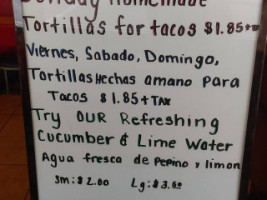 Sunday Homemade
Tortillas for tacos $1.85+TAX
Viernes, Sabado, Domingo,
Tortillas Hechas amano Para
Tacos $1.85+TAX
Try OUR Refreshing
Cucumber & Lime Water
Agua fresca de Pepino y limon
Sm: $2.00 Lg: $3.60